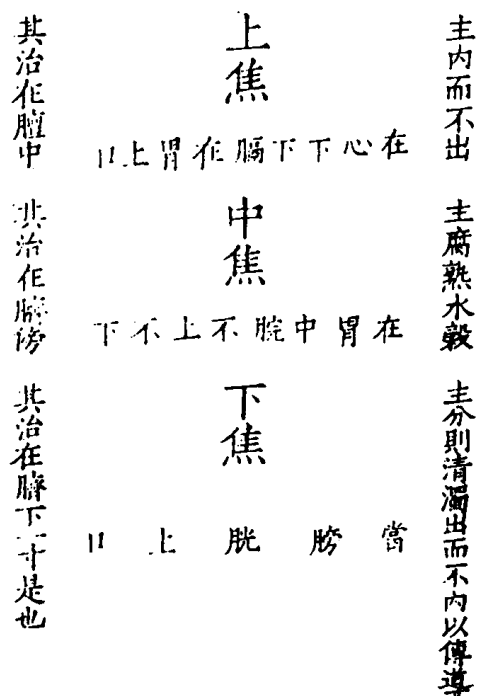 主内而不出
上焦
在心下下膈在胃上口
其治在膻中
主腐熟水穀
中焦
在胃中脘不上不下
其治在臍傍
主分則清濁出而不内以傳導
下焦
當膀胱上口
其治在臍下一寸是也